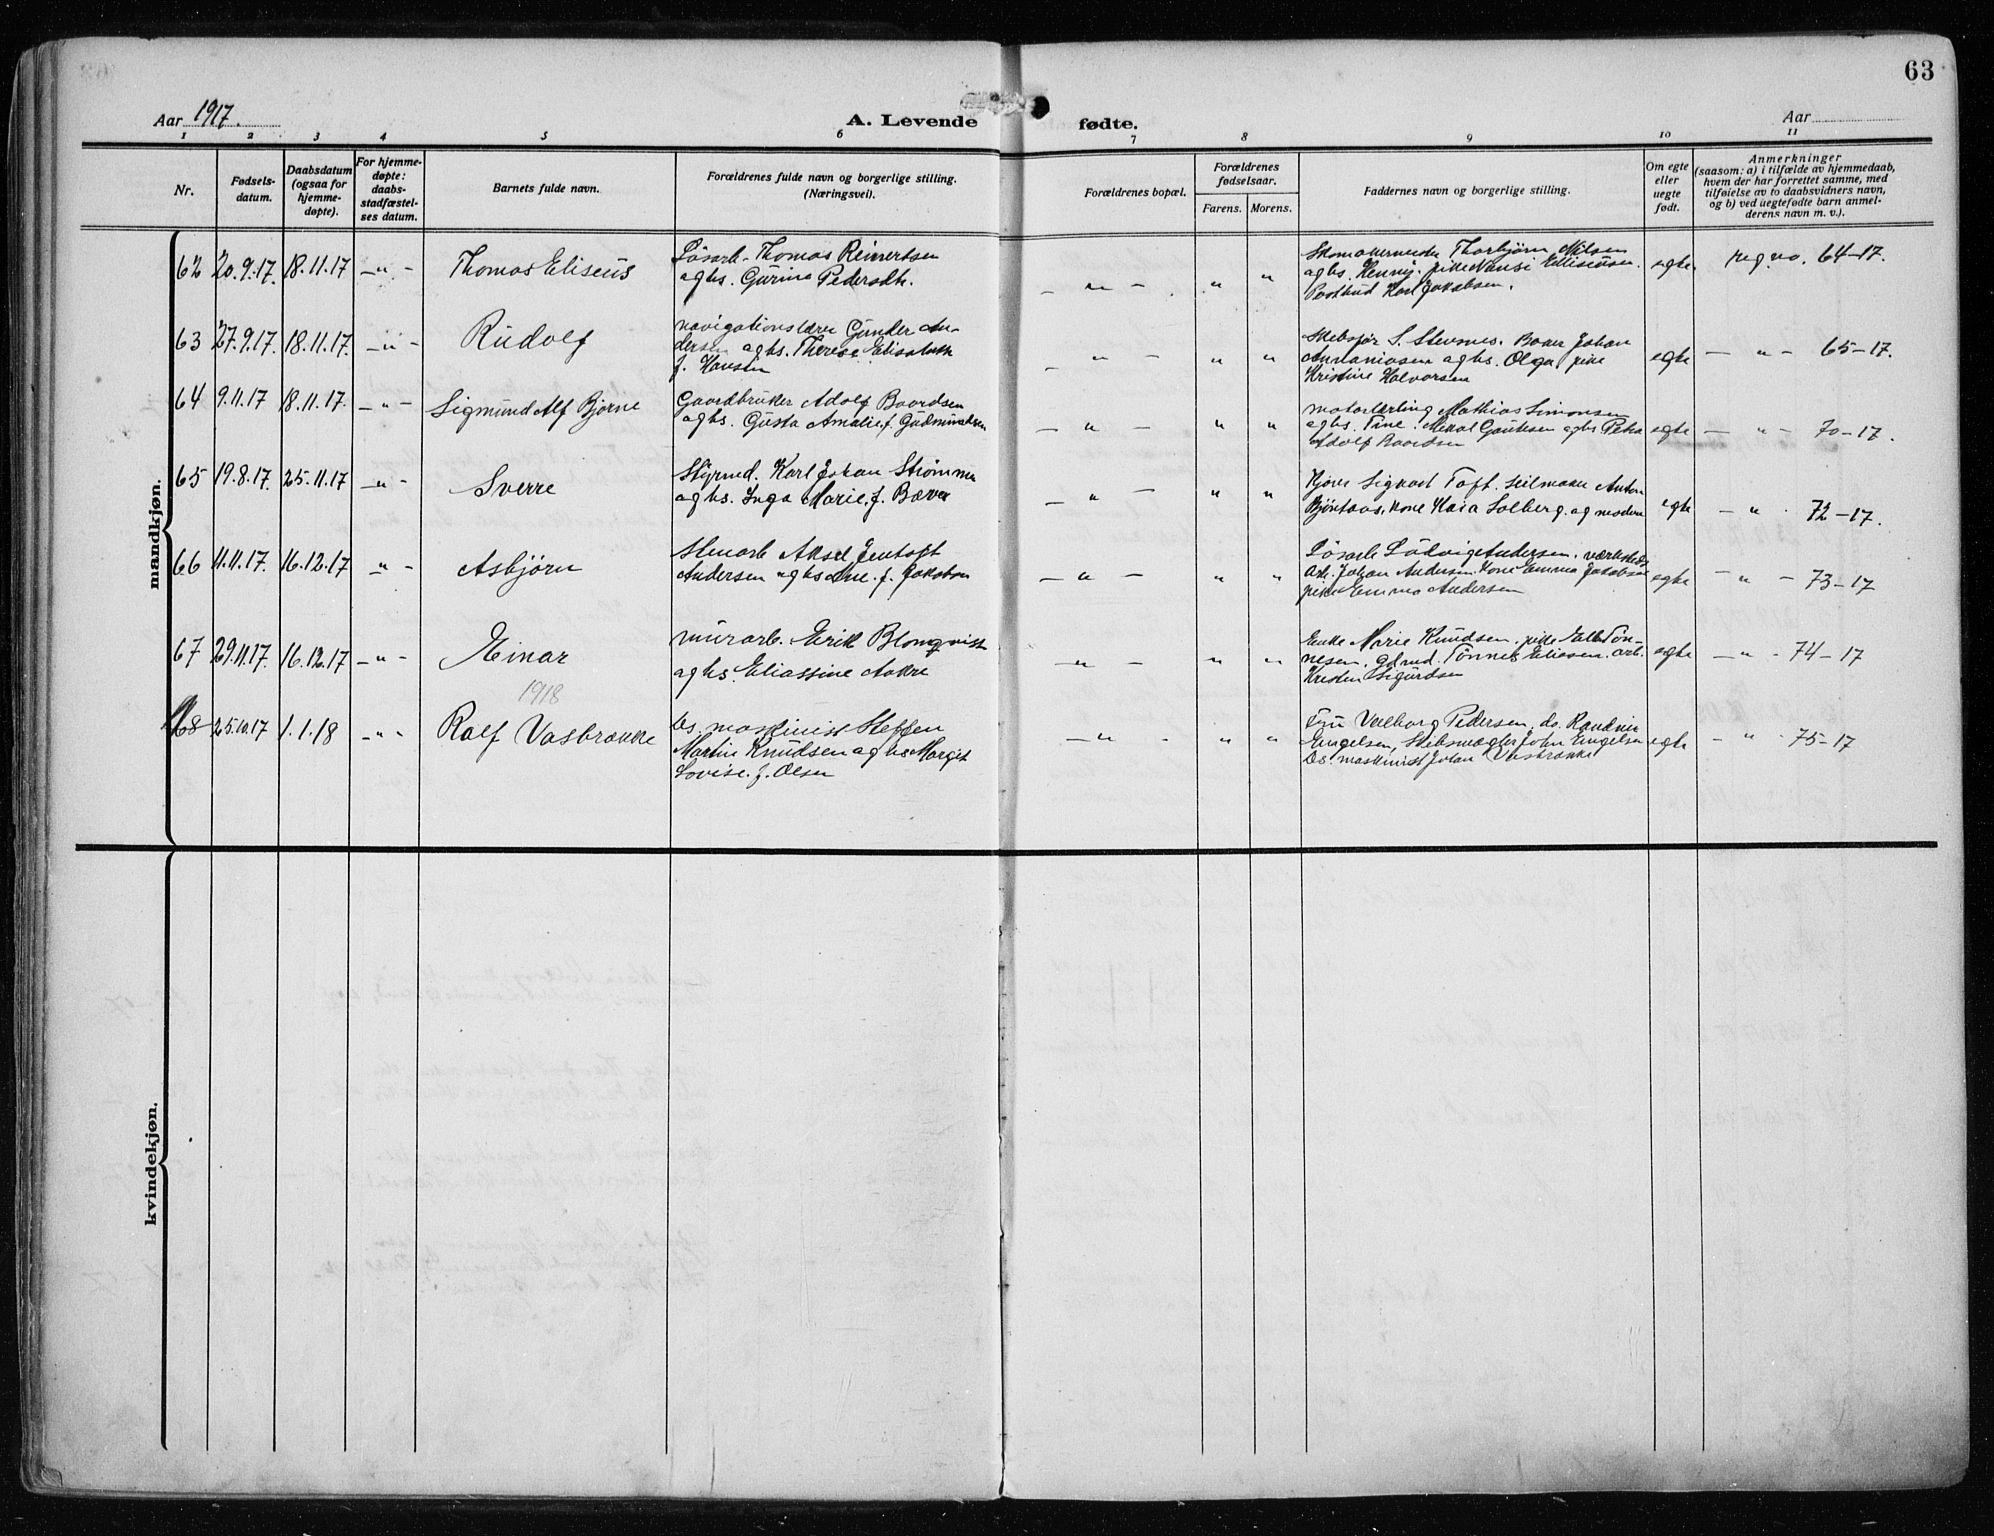 63
Aar 1917.
A. Levende fødte.
Aar
1 2 3 4 5 6 7 8 9 10 11
Nr.
Fødsels-
datum.
Daabsdatum
(ogsaa for
hjemme-
døpte).
For hjemme-
døpte:
daabs-
stadfæstel-
ses datum.
Barnets fulde navn.
Forældrenes fulde navn og borgerlige stilling.
(Næringsvei).
Forældrenes bopæl.
Forældrenes
fødselsaar.
Farens. Morens.
Faddernes navn og borgerlige stilling.
Om egte
eller
uegte
født.
Anmerkninger
(saasom: a) i tilfælde av hjemmedaab,
hvem der har forrettet samme, med
tilføielse av to daabsvidners navn,
og b) ved uegtefødte barn anmel-
derens navn m. v.).
mandkjøn.
62 20.9.17. 18.11.17 — „ - Thomas Eliseus
Løsarb. Thomas Reinertsen
aghs. Gurine Pedersdtr.
— „ — „ „
Thorbjørn Nilsen
aghs. Henny. pike Nansi Elliseusen.
Postbud Karl Jakobsen.
egte reg no. 64-17.
63 27.9.17. 18.11.17. — „ - Rudolf
navigationslærer Gunder An-
dersen aghs. Therese Elisabeth
f. Hansen
— „ — „ „
S. Stensnes. Johan
aghs. Olga, pike
Kristine Halvorsen
egte — „ - 65-17.
64 9.11.17 18.11.17. — „ - Sigmund Alf Bjørne
Gaardbruker Adolf Baardsen
aghs. Gusta Amalie f. Gudmundsen
— „ — „ „
motorlærling Mathias Simonsen
aghs. Tine. aghs Petra
Adolf Baardsen
egte — „ - 70-17.
65 19.8.17. 25.11.17 — „ - Sverre
Styrmd. Karl Johan Strømmen
aghs. Inga Marie, f. Bæver
— „ — „ „
Sigvart Toft. seilmaker Anton
kone Kaia Solberg. og modere
egte — „ - 72-17.
66 11.11.17. 16.12.17 — „ - Asbjørn
Stenarb. Aksel Jentoft
Andersen aghs Ane. f. Jakobsen
— „ — „ „
Løsarb Ludvig Andersen. værksteds
arb. Johan Andersen. kone Emma Jakobsen
pike Emma Andersen
egte — „ - 73-17
67 29.11.17. 16.12.17 — „ - Einar
murarb. Erik Blomqvist
aghs. Eliassine Aakre
— „ — „ „
Enke Marie Knudsen. pike Tøn-
nesen. gdmd. Tønnes Eliasen. arb.
Kristen Sigurdsen
egte — „ - 74-17
1918
68 25.10.17 1.1.18 — „ - Ralf Vasbrække
Ds. maskinist Steffen
Martin Knudsen aghs Margit
Lovise. f. Olsen
— „ — „ „
Fru Valborg Pedersen, do. Randine
Engelsen, Skibsmægler John Engelsen
Ds. maskinist Johan Vasbrække
egte — „ - 75-17
kvindekjøn.